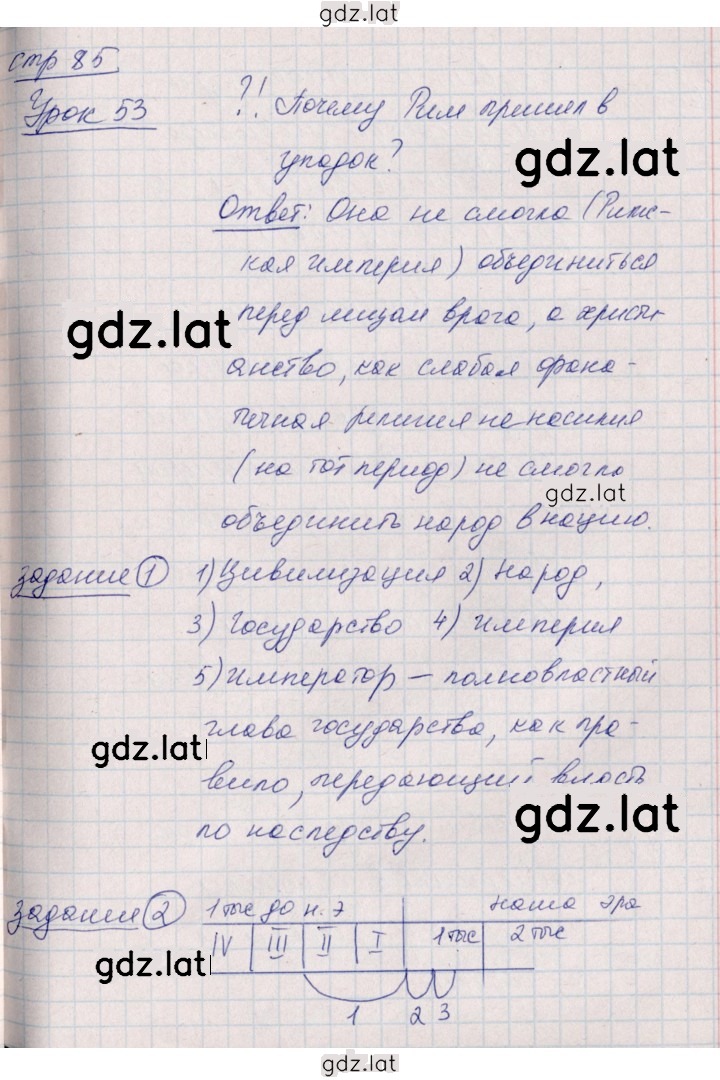 gdz.lat
стр 85
Урок 53
?! Почему Рим пришел в
упадок?
gdz.lat
Ответ: Она не смогла (Римс-
кая империя) объединиться
перед лицом врага, а христи-
gdz.lat
анство, как слабая фана-
тичная религия не насилия
(на тот период) не смогло
gdz.lat
объединить народ в нацию.
задание 1 1) Цивилизация 2) Народ,
3) Государство 4) Империя
5) Император — полновластный
глава государства, как пра-
gdz.lat
вило, передающий власть
gdz.lat
по наследству.
задание 2 1 тыс до н. э наша эра
IV III II I 1 тыс 2 тыс
gdz.lat
1 2 3
gdz.lat